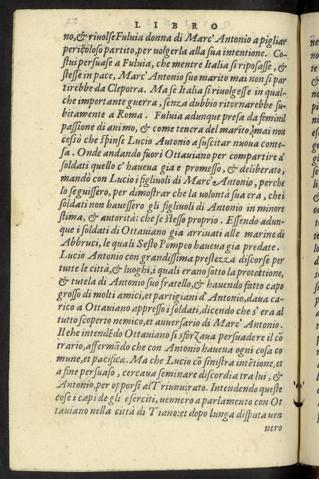 LIBRO
no, & riuolse Fuluia donna di Marc' Antonio a pigliar
pericoloso partito, per uolgerla alla sua intentione. Co-
stui persuase a Fuluia, che mentre Italia si riposasse, &
stesse in pace, Marc' Antonio suo marito mai non si par
tirebbe da Cleopatra. Ma se Italia si riuolgesse in qual-
che importante guerra, senza dubbio ritornarebbe su-
bitamente a Roma. Fuluia adunque presa da feminil
passione di animo, & come tenera del marito, mai non
cessò che spinse Lucio Antonio a suscitar nuoua conte-
sa. Onde andando fuori Ottauiano per compartire a'
soldati quello c' haueua gia e promesso, & deliberato,
mandò con Lucio i figliuoli di Marc' Antonio, perche
lo seguissero, per dimostrar che la uolontà sua era, che i
soldati non hauessero gli figliuoli di Antonio in minore
stima, & autorità: che se stesso proprio. Essendo adun-
que i soldati di Ottauiano gia arriuati alle marine di
Abbruci, le quali Sesto Pompeo haueua gia predate.
Lucio Antonio con grandissima prestezza discorse per
tutte le città, & luoghi, i quali erano sotto la protettione,
& tutela di Antonio suo fratello, & hauendo fatto capo
grosso di molti amici, et partigiani d' Antonio, daua ca-
rico a Ottauiano appresso i soldati, dicendo che s' era al
tutto scoperto nemico, et auuersario di Marc' Antonio.
Il che intendẽdo Ottauiano si sforzaua persuadere il cõ
trario, affermãdo che con Antonio haueua ogni cosa co
mune, et pacifica. Ma che Lucio cõ sinistra intẽtione, et
a fine peruaso, cercaua seminare discordia tra lui, &
Antonio, per opporsi al Triunuirato. Intendendo queste
cose i capi de gli eserciti, uennero a parlamento con Ot
tauiano nella città di Tiano: et dopo lunga disputa uen
nero